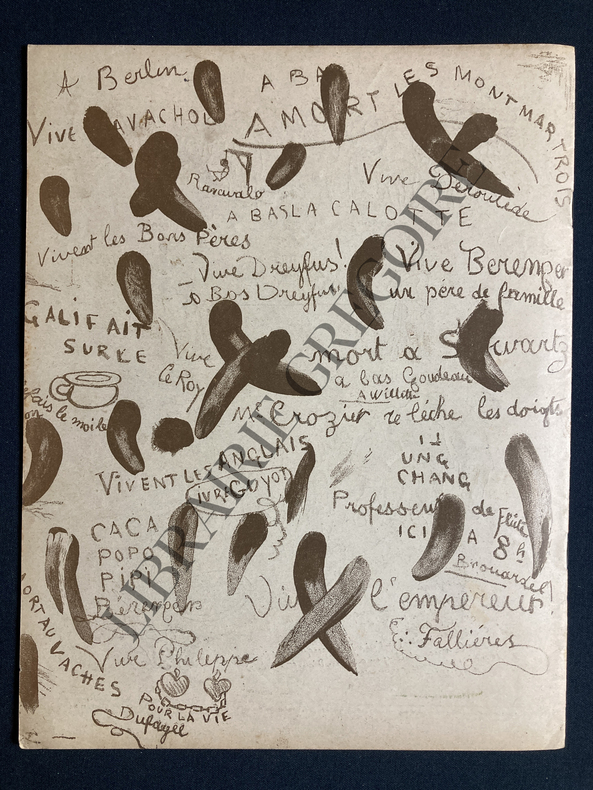 A Berlin.
A BA
A MORT LES MONTMARTROIS
Vive AVACHOL
Ranavalo
Vive Déroulède
A BAS LA CALOTTE
Vivent les Bons Pères
Vive Dreyfus!
à Bas Dreyfus
Vive Berenger
un père de famille
GALIFAIT
SURLE
Vive
le Roy
mort a S wartz
a bas Goudeau
A Willette
Mr Crozier se lèche les doigts
VIVENT LES ANGLAIS
IVRE GUYOT
LI
UNG
CHANG
Professeur de flûte
ICI A 8h
Brouardel
CACA
POPO
PIPI
Bérenger
Vive l'empereur!
Fallières
MORT AUX VACHES
Vive Philippe
POUR LA VIE
Dufayel
LIBRAIRIE GREGOIRE